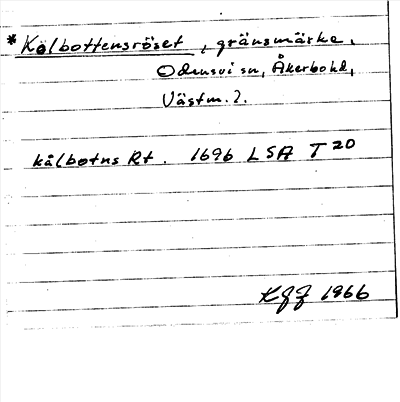 *Kolbottensröset, gränsmärke,
Odensvi sn, Åkerbo hd,
Västm. l.
kålbotns Rt. 1696 LSA T 20
KGJ 1966